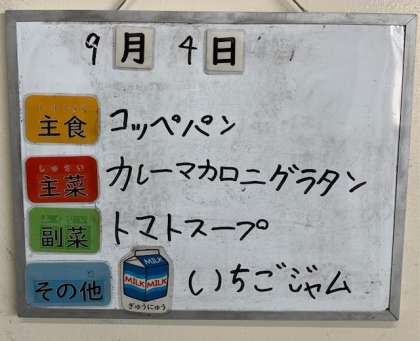 9月4日
主食 コッペパン
しゅさい
主菜 カレーマカロニグラタン
副菜 トマトスープ
その他 MILK MILK MILK いちごジャム
ぎゅうにゅう